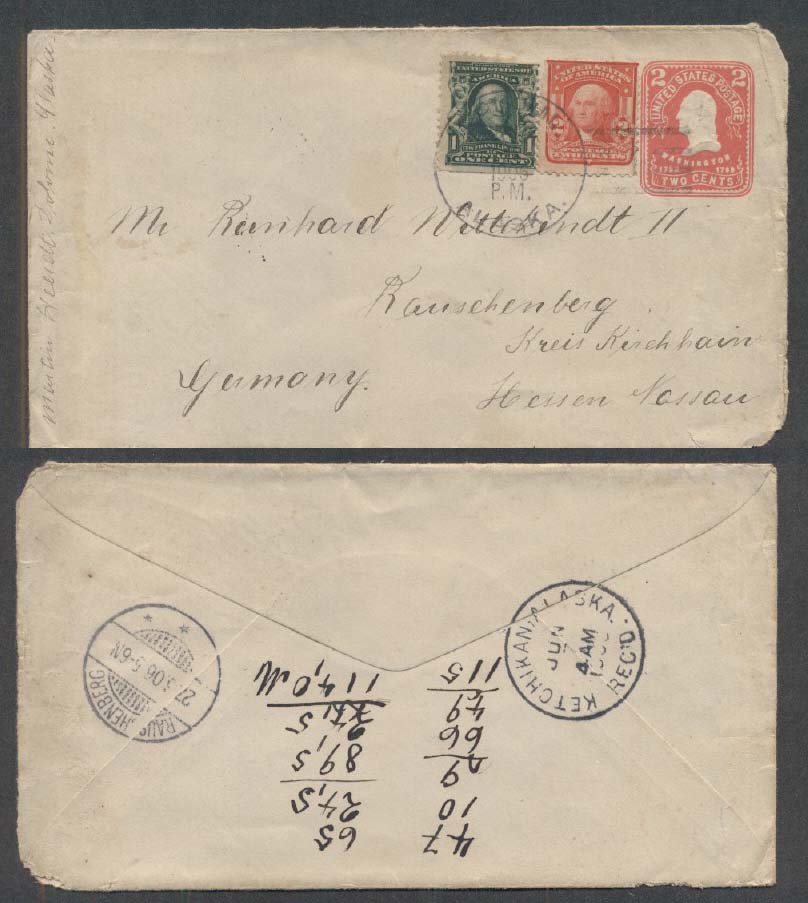 UNITED STATES OF AMERICA
1 1
FRANKLIN
POSTAGE
ONE CENT
UNITED STATES
OF AMERICA
2 2
UNITED STATES POSTAGE
WASHINGTON
1732 1799
TWO CENTS
P.M.
ALASKA.
Martin Dolomi, Alaska.
Mr Reinhard II
Rauschenberg
Kreis Kirchhain
Germany.
Hessen Nassau
RAUSCHENBERG
27. 06. 5-6N
KETCHIKAN, ALASKA. REC'D.
JUN
4 AM
1906
47
10
66
49
115
65
24,5
89,5
24,5
114,0 M